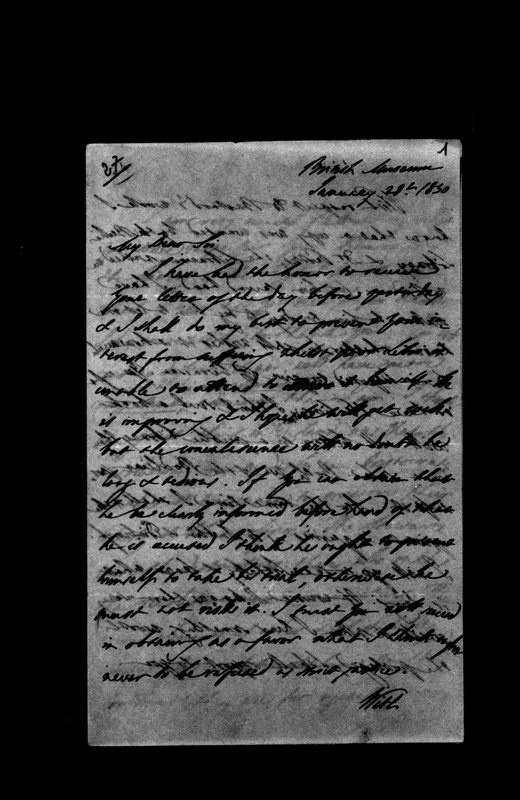 27/
1
British Museum
January 28th 1830
My Dear Sir
I have had the honor to receive
your letter of the day before yesterday
& I shall do my best to prevent your in-
terest from suffering whilst your is
unable to attend to himself. He
is improving & I hope he will get
but the convalescence will no doubt be
long & tedious. If you can obtain that
he be clearly informed before hand of what
he is accused I think he ought to
himself to take the trial, otherwise he
must not risk it. I trust you will succeed
in obtaining as a favor what I think ought
never to be refused as strict justice.
With